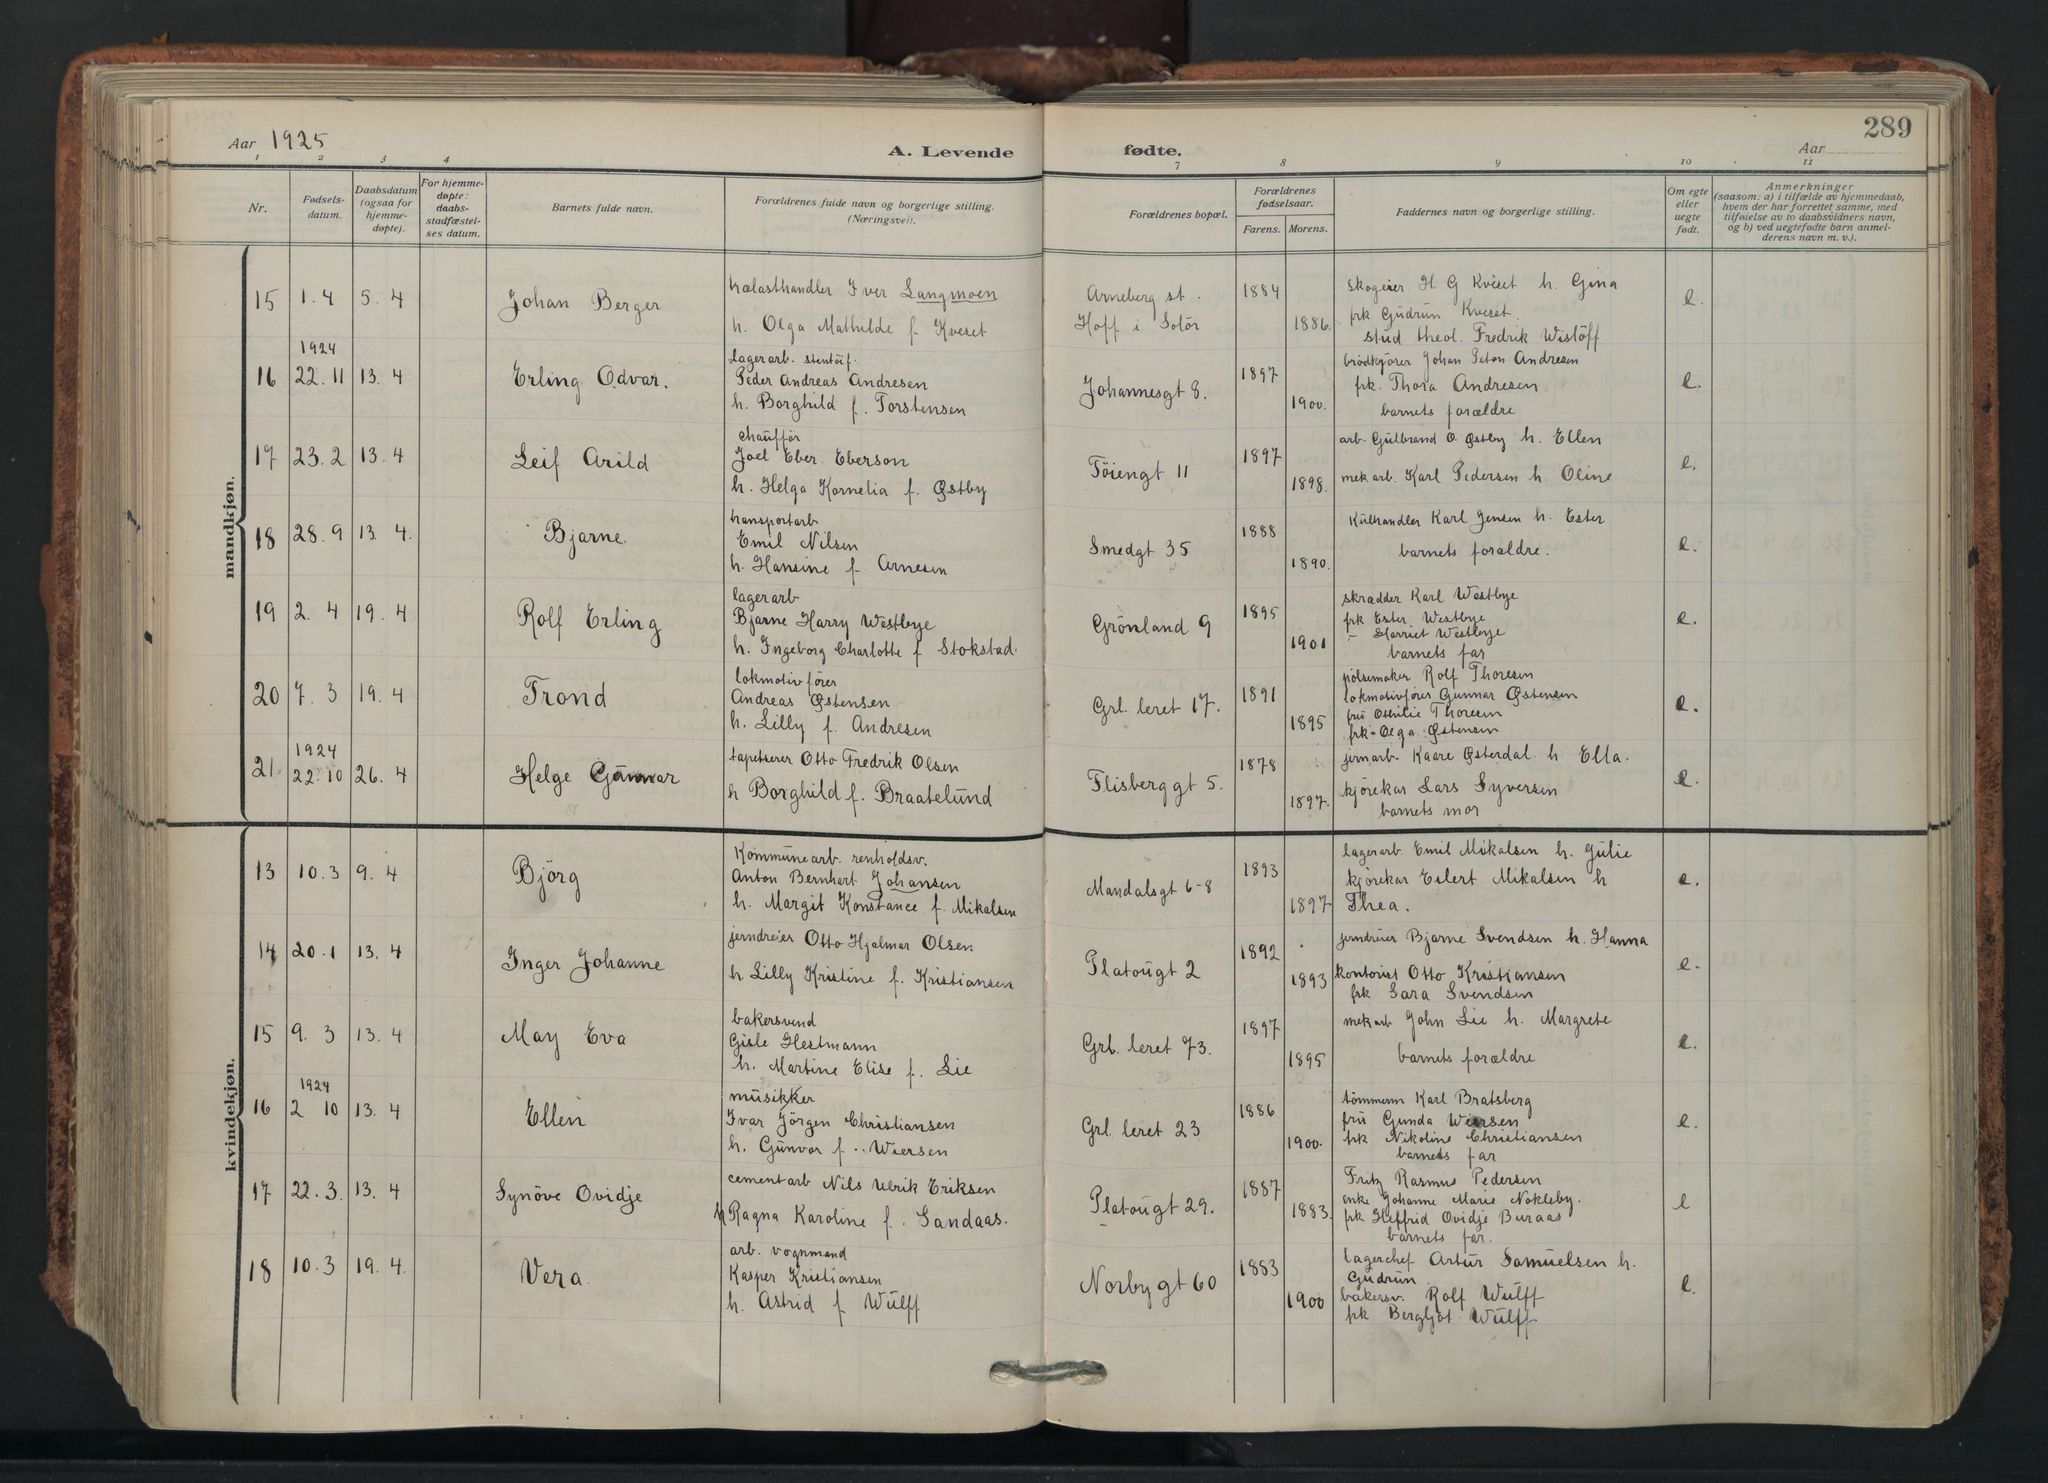 289
Aar 1925
A. Levende fødte.
Aar
1 2 3 4 7 8 9 10 11
Nr.
Fødsels-
datum.
Daabsdatum
(ogsaa for
hjemme-
døpte).
For hjemme-
døpte:
daabs-
stadfæstel-
ses datum.
Barnets fulde navn.
Forældrenes fulde navn og borgerlige stilling.
(Næringsvei).
Forældrenes bopæl.
Forældrenes
fødselsaar.
Farens. Morens.
Faddernes navn og borgerlige stilling.
Om egte
eller
uegte
født.
Anmerkninger
(saasom: a) i tilfælde av hjemmedaab,
hvem der har forrettet samme, med
tilføielse av to daabsvidners navn,
og b) ved uegtefødte barn anmel-
derens navn m. v.).
mandkjøn.
15 1.4 5.4 Johan Berger
Iver Langmoen
h. Olga Mathilde f. Kveset
Arneberg st.
Hoff i Solör
1884
1886.
skogeier H G Kveset h. Gina
frk Gudrun Kveset.
stud theol. Fredrik Wistöff
e.
16 1924
22.11 13.4 Erling Odvar.
lagerarb.
Peder Andreas Andresen
h. Borghild f. Torstensen
Johannesgt 8.
1897
1900.
brödkjörer Johan Andresen
frk. Thora Andresen
barnets forældre
e.
17 23.2 13.4 Leif Arild
chauffør
Joel Eber Eberson
h. Helga Kornelia f. Østby
Töiengt 11
1897
1898.
arb. Gulbrand O. Østby h. Ellen
mek arb. Karl Pedersen h. Oline
e.
18 28.9 13.4. Bjarne.
transportarb
Emil Nilsen
h. Hansine f. Arnesen
Smedgt 35
1888
1890.
Kulhandler Karl Jensen h. Ester
barnets forældre.
e.
19 2.4 19.4 Rolf Erling
lagerarb
Bjarne Harry Westbye
h. Ingeborg Charlotte f Stokstad.
Grönland 9
1895
1901
skrædder Karl Westbye
frk Ester Westbye
" Harriet Westbye
barnets far
e.
20 7.3 19.4 Trond
lokmotivfører
Andreas Østensen
h. Lilly f. Andresen
Grl. leret 17.
1891
1895
pölsemaker Rolf Thoresen
lokmotivfører Gunnar Østensen
fru Othilie Thoresen
frk. Olga Østensen
e.
21 1924
22.10 26.4 Helge Gunnar
tapetserer Otto Fredrik Olsen
h Borghild f. Braatelund
Flisberggt 5.
1878
1897.
jernarb. Kaare Østerdal h Ella.
kjörekar Lars Syversen
barnets mor
e.
kvindekjøn.
13 10.3 9.4 Björg
Kommunearb. renholdsv.
Anton Bernhert Johansen
h. Margit Konstance f. Mikalsen
Mandalsgt 6-8
1893
1897
lagerarb Emil Mikalsen h. Julie
kjörekar Eilert Mikalsen h
Thea.
e.
14 20.1 13.4 Inger Johanne
jerndreier Otto Hjalmar Olsen
h. Lilly Kristine f. Kristiansen
Platougt 2
1892
1893
jerndreier Bjarne Svendsen h. Hanna
kontorist Otto Kristiansen
frk Sara Svendsen
e.
15 9.3 13.4 May Eva
bakersvend
Gisle Hestmann
h. Martine Elise f. Lie
Grl. leret 73.
1897
1895
mek arb John Lie h. Margrete
barnets forældre
e.
16 1924
2 10 13.4 Ellen
musikker
Ivar Jörgen Christiansen
h. Gunvor f. Wiersen
Grl. leret 23
1886
1900.
tömmerm Karl Bratsberg
fru Gunda Wiersen
frk Nikoline Christiansen
barnets far
e.
17 22.3. 13.4 Synöve Ovidje
cementarb Nils Ulrik Eriksen
h Ragna Karoline f. Sandaas.
Platougt 29.
1887
1883.
Fritz Rasmus Pedersen
enke Johanne Marie Nokleby.
frk Ovidje Buraas
barnets far.
e
18 10.3 19.4. Vera.
arb. vognmand
Kasper Kristiansen
h. Astrid f Wulff
Norbygt 60
1883
1900
lagerchef Artur Samuelsen h.
Gudrun.
bakersv. Rolf Wulff
frk Bergljot Wulff
e.